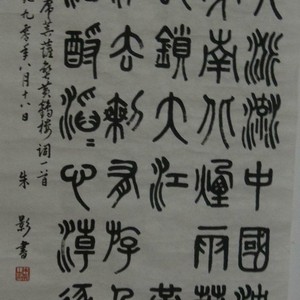 九派流中國沈
南北煙雨莽
鎖大江黃
去剩有游人
酹滔〻心潮逐
席菩薩蠻黃鶴樓词一首
年八月十八日 朱影書